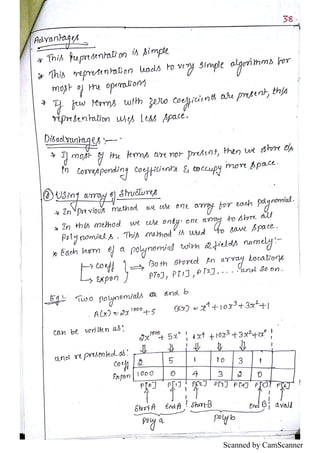 38
Advantages
* This representation is simple
* This representation leads to very simple algorithms for
most of the operations
* If few terms with zero coefficients are present, this
representation uses less space.
Disadvantages :-
* If most of the terms are not present, then we store 0's
in corresponding coefficients & occupy more space.
② Using array of structures
* In previous method we use one array for each polynomial.
* In this method we use only one array to store all
Polynomials. This method is used to save space.
* Each term of a polynomial with 2 fields namely:-
→ coeff
→ Expon
Both stored in array locations
P[0], P[1], P[2].... and so on.
Eg:- Two polynomials a and b
A(x) = 2x¹⁰⁰⁰+5 B(x) = x⁴ + 10x³ + 3x² + 1
can be written as:
2x¹⁰⁰⁰ + 5x⁰ x⁴ + 10x³ + 3x² + x⁰
and represented as:
Coeff 2 5 1 10 3 1
Expon 1000 0 4 3 2 0
P[0] P[1] P[2] P[3] P[4] P[5] P[6]
StartA EndA StartB End B avail
Poly a poly b
Scanned by CamScanner